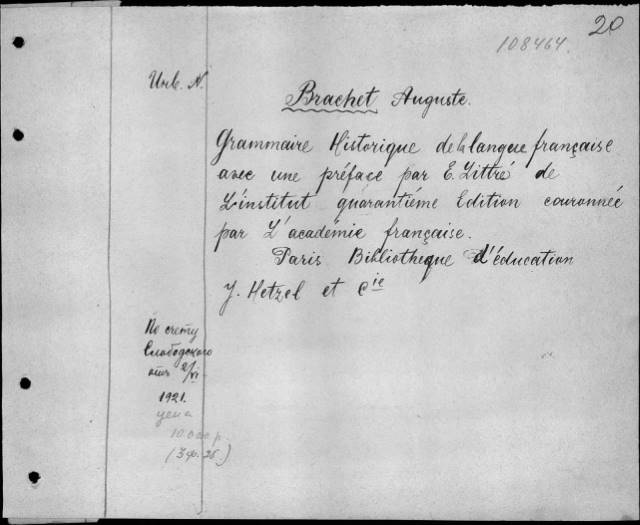 20
108464.
Инв. N.
Brachet Auguste.
Grammaire Historique de la langue française
avec une préface par E. Littré de
L'institut quarantiéme Edition couronnée
par L'académie française.
Paris Bibliotheque d'éducation
J. Hetzel et Cie
По счету
Слободского
от 2/VI
1921.
цена
10.000 р.
(3 ф. 25.)